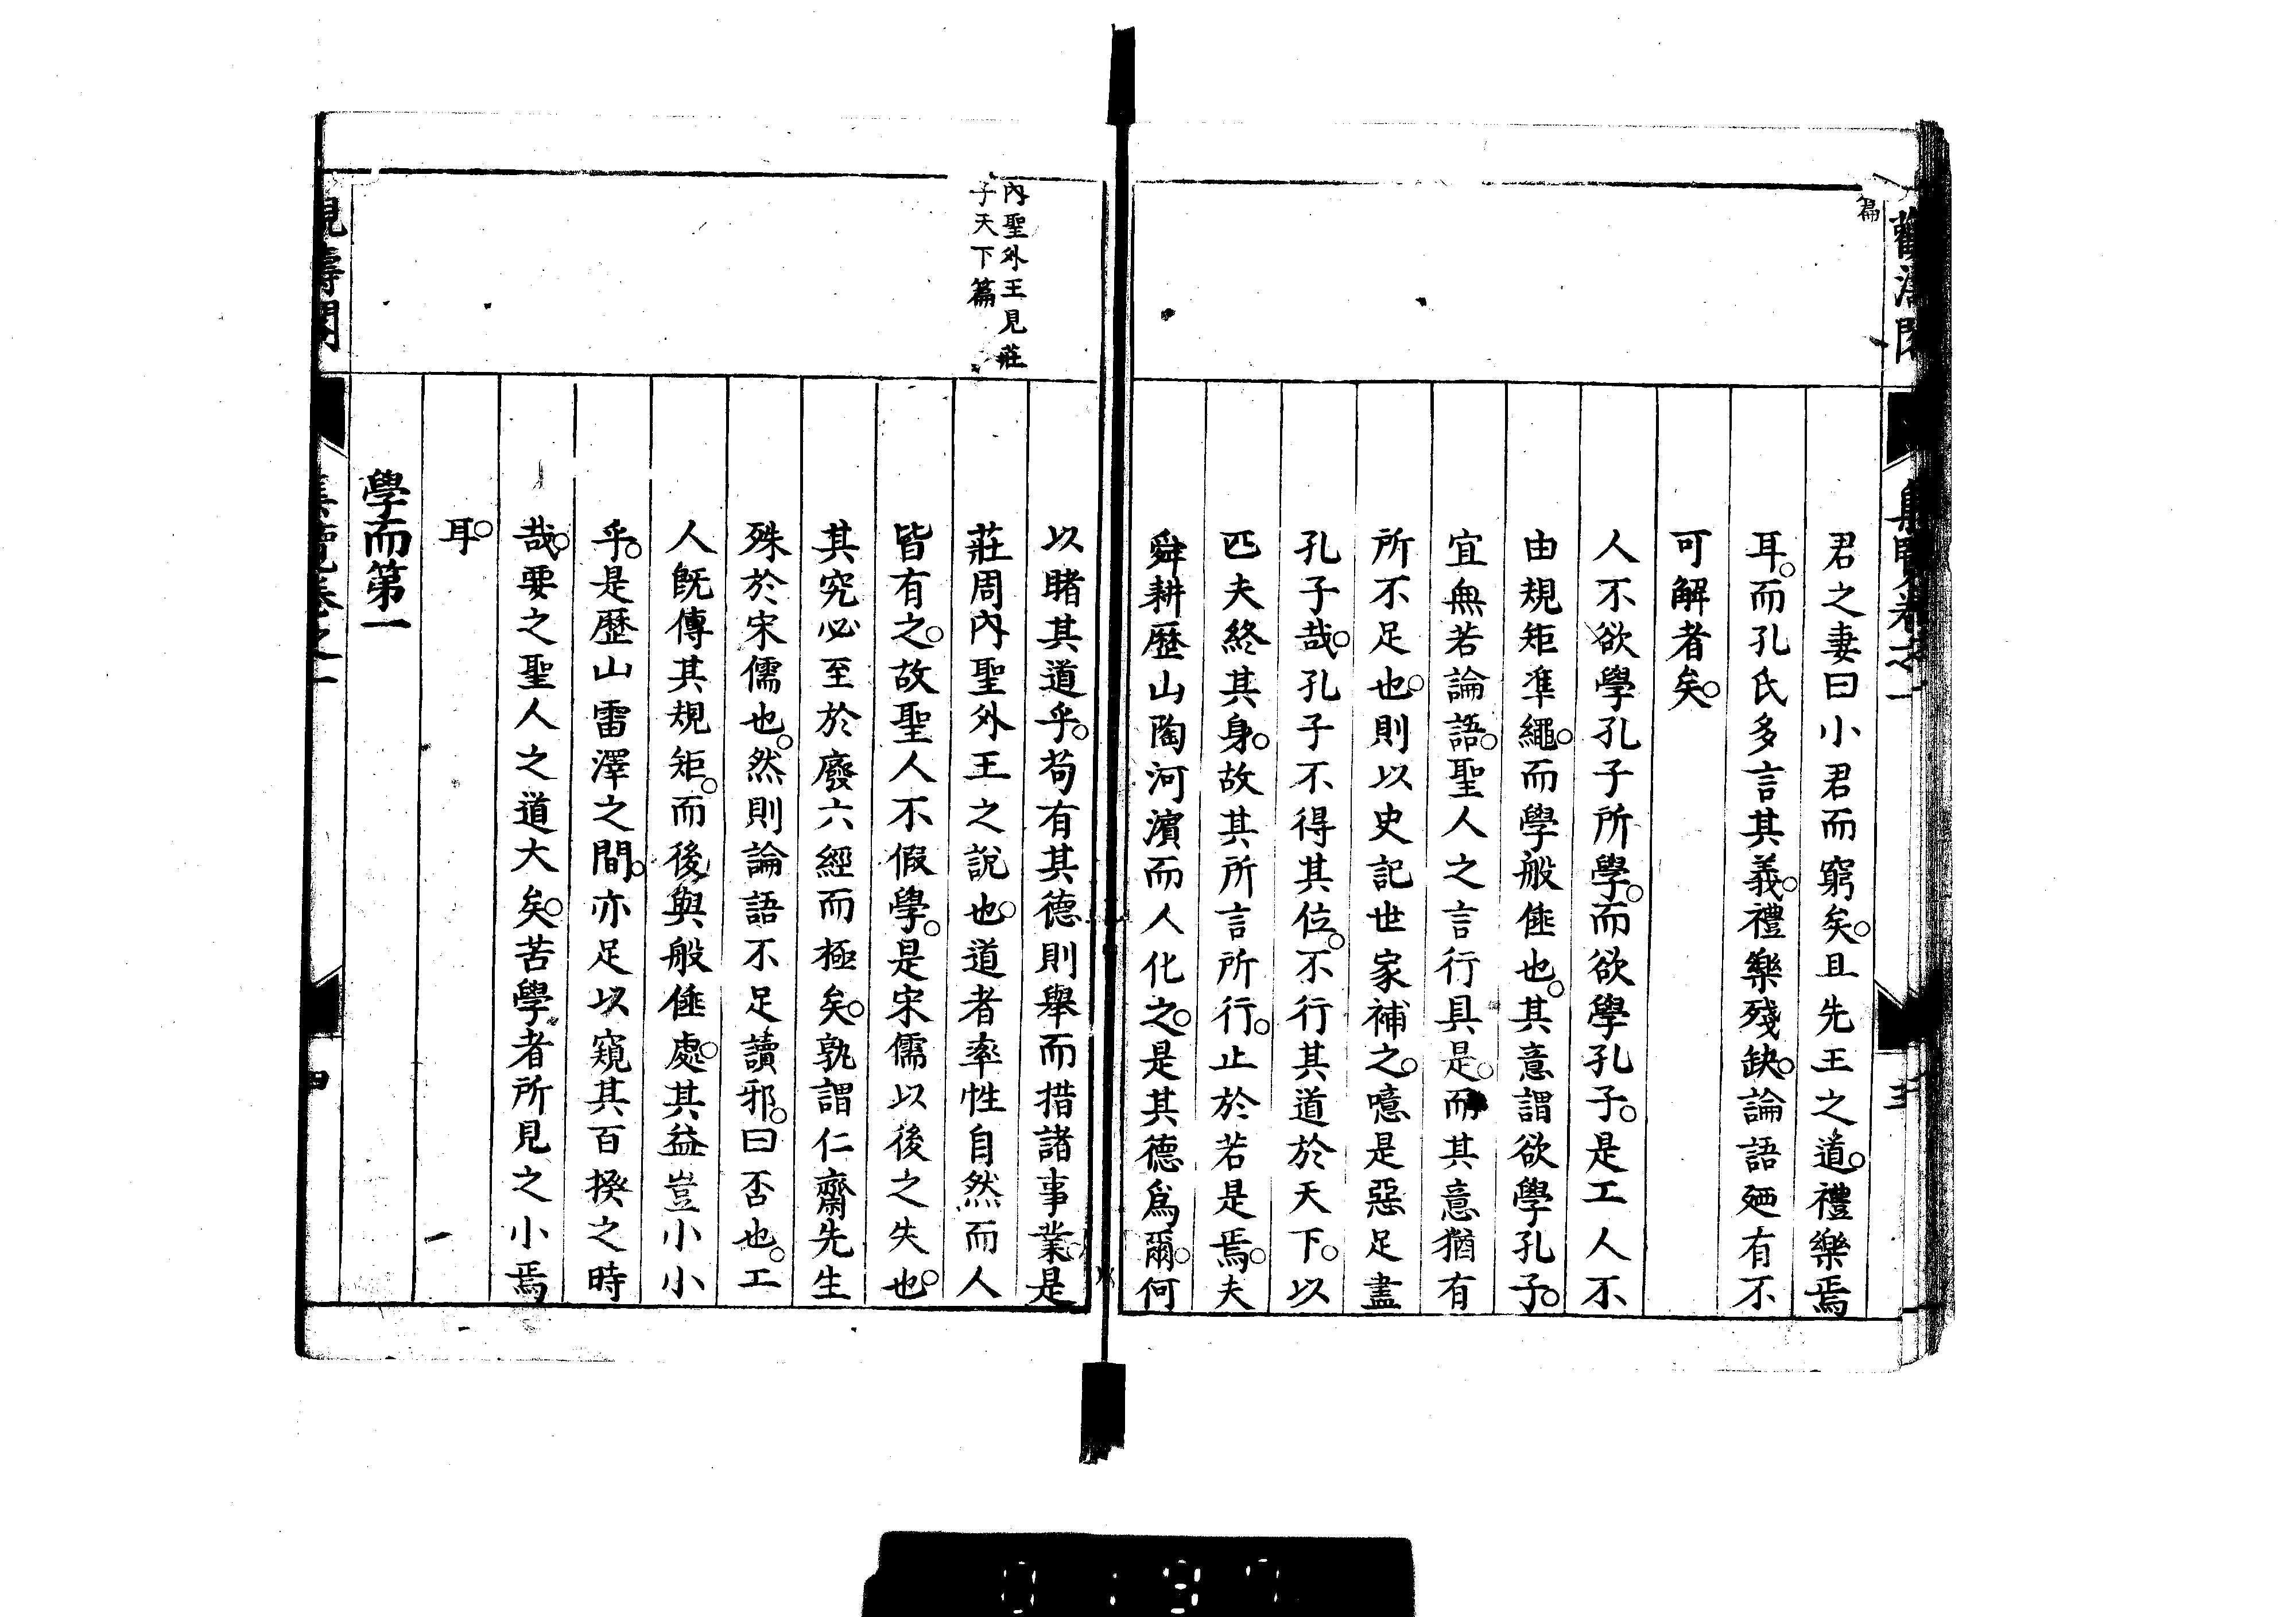 篇
君之妻曰小君而窮矣。且先王之道。禮樂焉
耳。而孔氏多言其義。禮樂殘缺。論語廼有不
可解者矣。
人不欲學孔子所學。而欲學孔子。是工人不
由規矩準繩。而學般倕也。其意謂欲學孔子。
宜無若論語。聖人之言行具是。而其意猶有
所不足也。則以史記世家補之。噫是惡足盡
孔子哉。孔子不得其位。不行其道於天下。以
匹夫終其身。故其所言所行。止於若是焉。夫
舜耕歷山陶河濱而人化之。是其德爲爾。何
內聖外王見莊
子天下篇
以睹其道乎。苟有其德則舉而措諸事業。是
莊周內聖外王之說也。道者率性自然而人
皆有之。故聖人不假學。是宋儒以後之失也。
其究必至於廢六經而極矣。孰謂仁齋先生
殊於宋儒也。然則論語不足讀邪。曰否也。工
人既傳其規矩。而後與般倕處。其益豈小小
乎。是歷山雷澤之間。亦足以窺其百揆之時
哉。要之聖人之道大矣。苦學者所見之小焉
耳。
學而第一
四